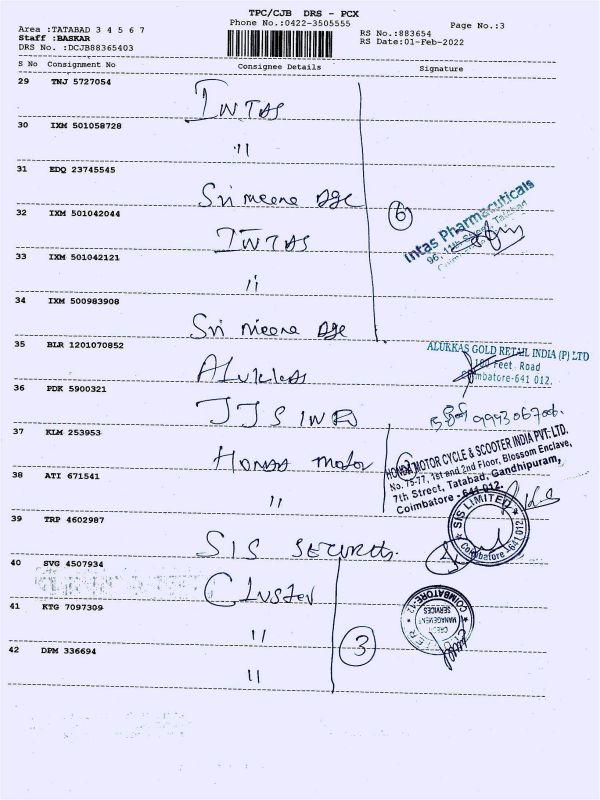 TPC/CJB DRS - PCX
Area :TATABAD 3 4 5 6 7
Phone No.:0422-3505555
Page No.:3
Staff :BASKAR
RS No.:883654
DRS No. :DCJB88365403
RS Date:01-Feb-2022
S No Consignment No Consignee Details Signature
29 TNJ 5727054
INTAS
30 IXM 501058728
"
31 EDQ 23745545
Sri meena
32 IXM 501042044
6
Intas Pharmaceuticals
96, 11th Street, Tatabad
INTAS
33 IXM 501042121
"
34 IXM 500983908
Sri meena
35 BLR 1201070852
ALUKKAS GOLD RETAIL INDIA (P) LTD
100 Feet Road
Coimbatore-641 012.
Alukkas
36 PDK 5900321
37 KLM 253953
HONDA MOTOR CYCLE & SCOOTER INDIA PVT. LTD.
No. 75-77, 1st and 2nd Floor, Blossom Enclave,
7th Street, Tatabad, Gandhipuram,
Coimbatore - 641 012.
Honda motor
38 ATI 671541
"
SIS LIMITED
Coimbatore-641 012.
39 TRP 4602987
SIS
40 SVG 4507934
Cluster
41 KTG 7097309
COIMBATORE-12
CREDIT
MANAGEMENT
SERVICES
"
3
42 DPM 336694
"